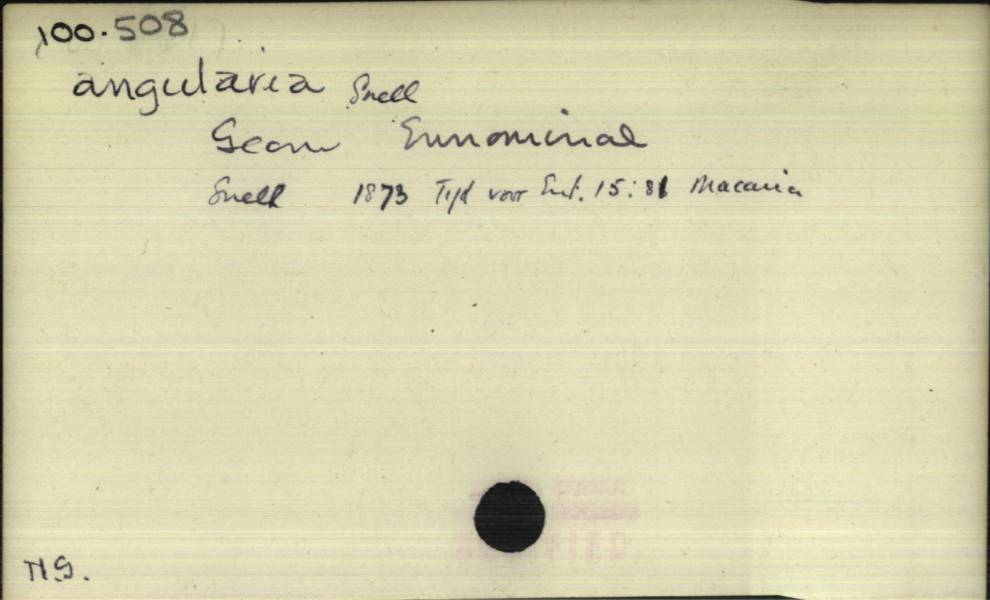 100.508
angularia Snell
Geom Ennominae
Snell 1873 Tijd voor Ent. 15:81 Macaria
N.G.